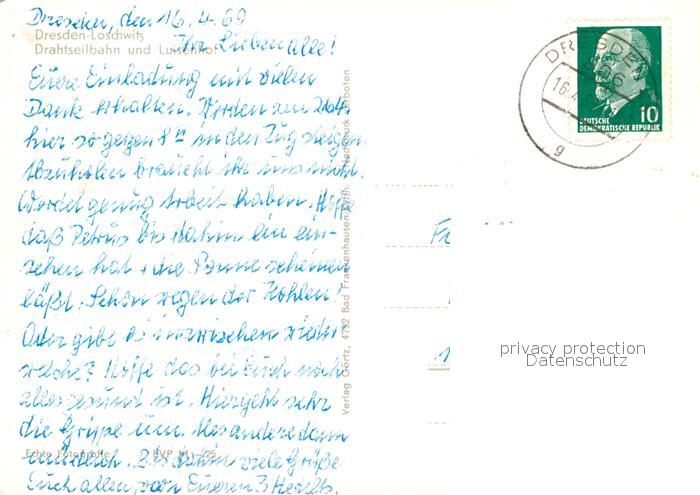 Dresden, den 16.4.69
Dresden-Loschwitz
Drahtseilbahn und Luisenhof
Ihr Lieben alle!
Eure Einladung mit vielen
Dank erhalten. Werden am 26.4.
hier so gegen 8 in den Zug steigen.
Abzuholen braucht ihr uns nicht.
Werdet genug Arbeit haben. Hoffe
daß Petrus bis dahin ein ein-
sehen hat + die Sonne scheinen
läßt. Schon wegen der Kohlen!
Oder gibt es inzwischen wieder
welche? Hoffe das bei Euch noch
alles gesund ist. Hier geht sehr
die Grippe um. Alles andere dann
mündlich. Bis dahin viele Grüße
Euch allen, von Euren 3
Echte Fotografie
Verlag Görtz, 4732 Bad Frankenhausen/Kyffh. Nachdruck verboten
DRESDEN
16.4
g
10
DEUTSCHE
DEMOKRATISCHE REPUBLIK
privacy protection
Datenschutz